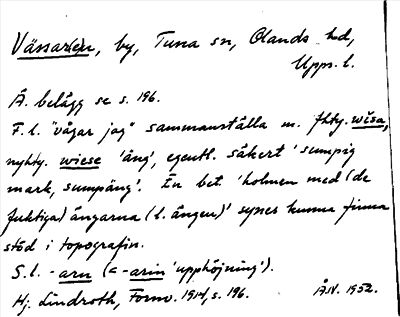 Vässar(e)n, by, Tuna sn, Olands hd,
Upps. l.
Ä. belägg se s. 196.
F.l. "vågar jag" sammanställa m. fhty. wisa,
nyhty. wiese 'äng', egentl. säkert 'sumpig
mark, sumpäng'. En bet. 'holmen med (de
fuktiga) ängarna (l. ängen)' synes kunna finna
stöd i topografin.
S.l. -arn (= -arin 'upphöjning').
Hj. Lindroth, Fornv. 1914, s. 196. ÅW. 1952.